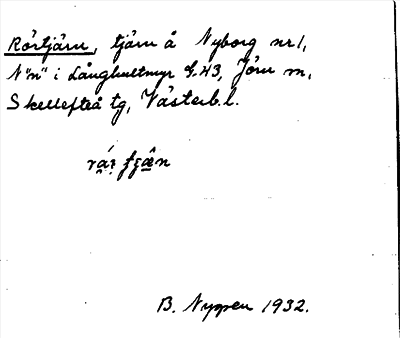 Rörtjärn, tjärn å Nyborg nr 1,
N"n" i Långhultmyr G.43, Jörn sn,
Skellefteå tg, Västerb. l.
B. Nyman 1932.